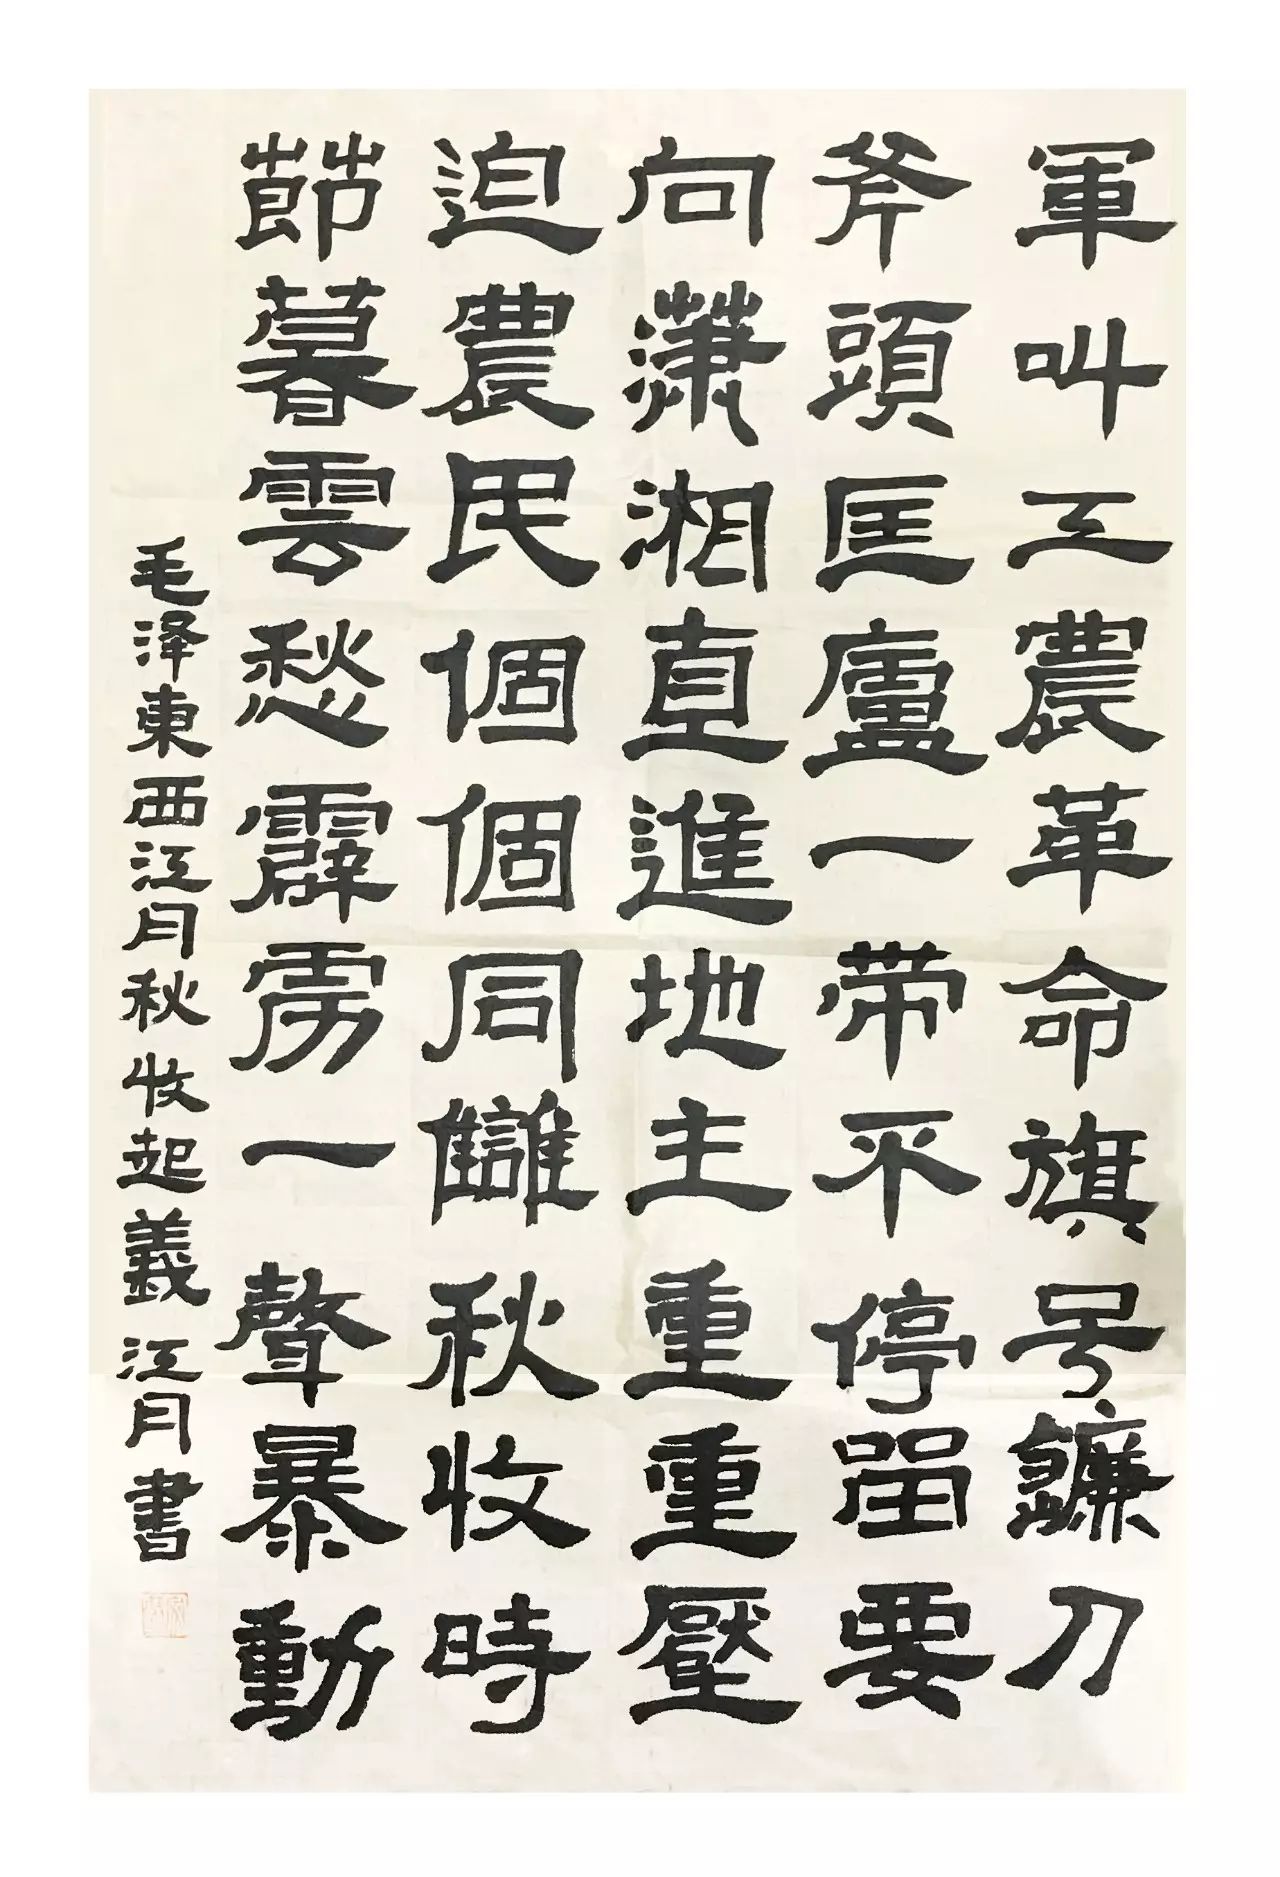 軍叫工農革命旗号鐮刀
斧頭匡廬一带不停留要
向潇湘直進地主重重壓
迫農民個個同讎秋收時
節暮雲愁霹雳一聲暴動
毛泽東西江月秋收起義江月書